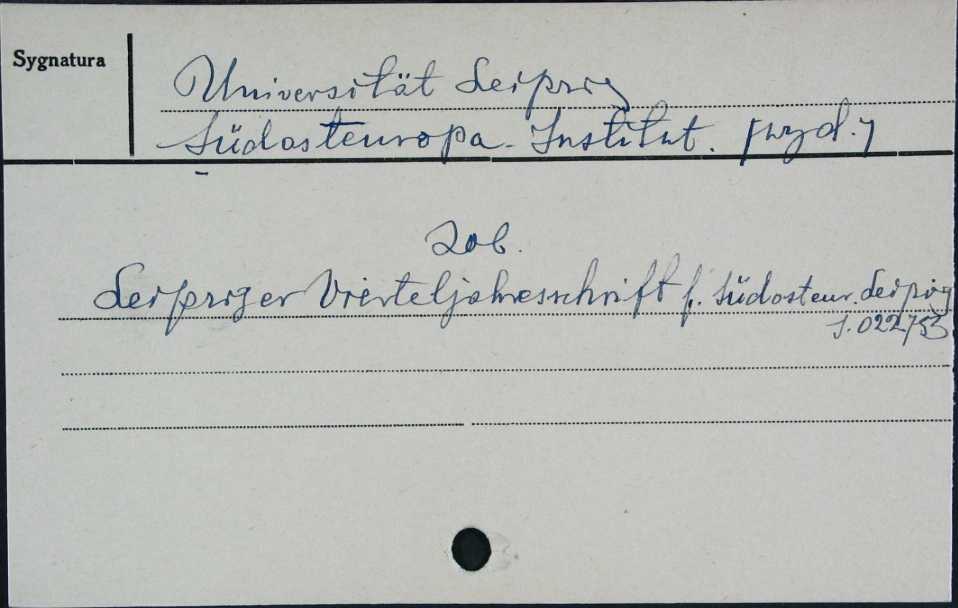 Sygnatura
Universität Leipzig
Südosteuropa-Institut. [wyd.]
Zob.
Leipziger Vierteljahresschrift f. Südosteur. Leipzig
S. 022753